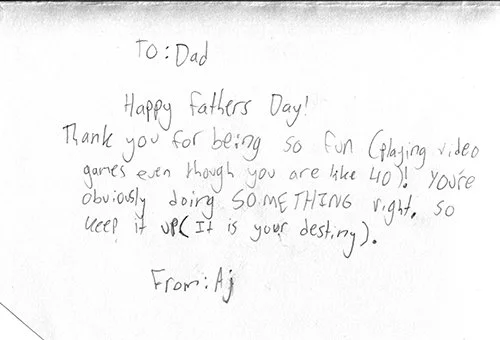 To: Dad
Happy Fathers Day!
Thank you for being so fun (playing video
games even though you are like 40)! You're
obviously doing SOMETHING right, so
keep it up (It is your destiny).
From: Aj